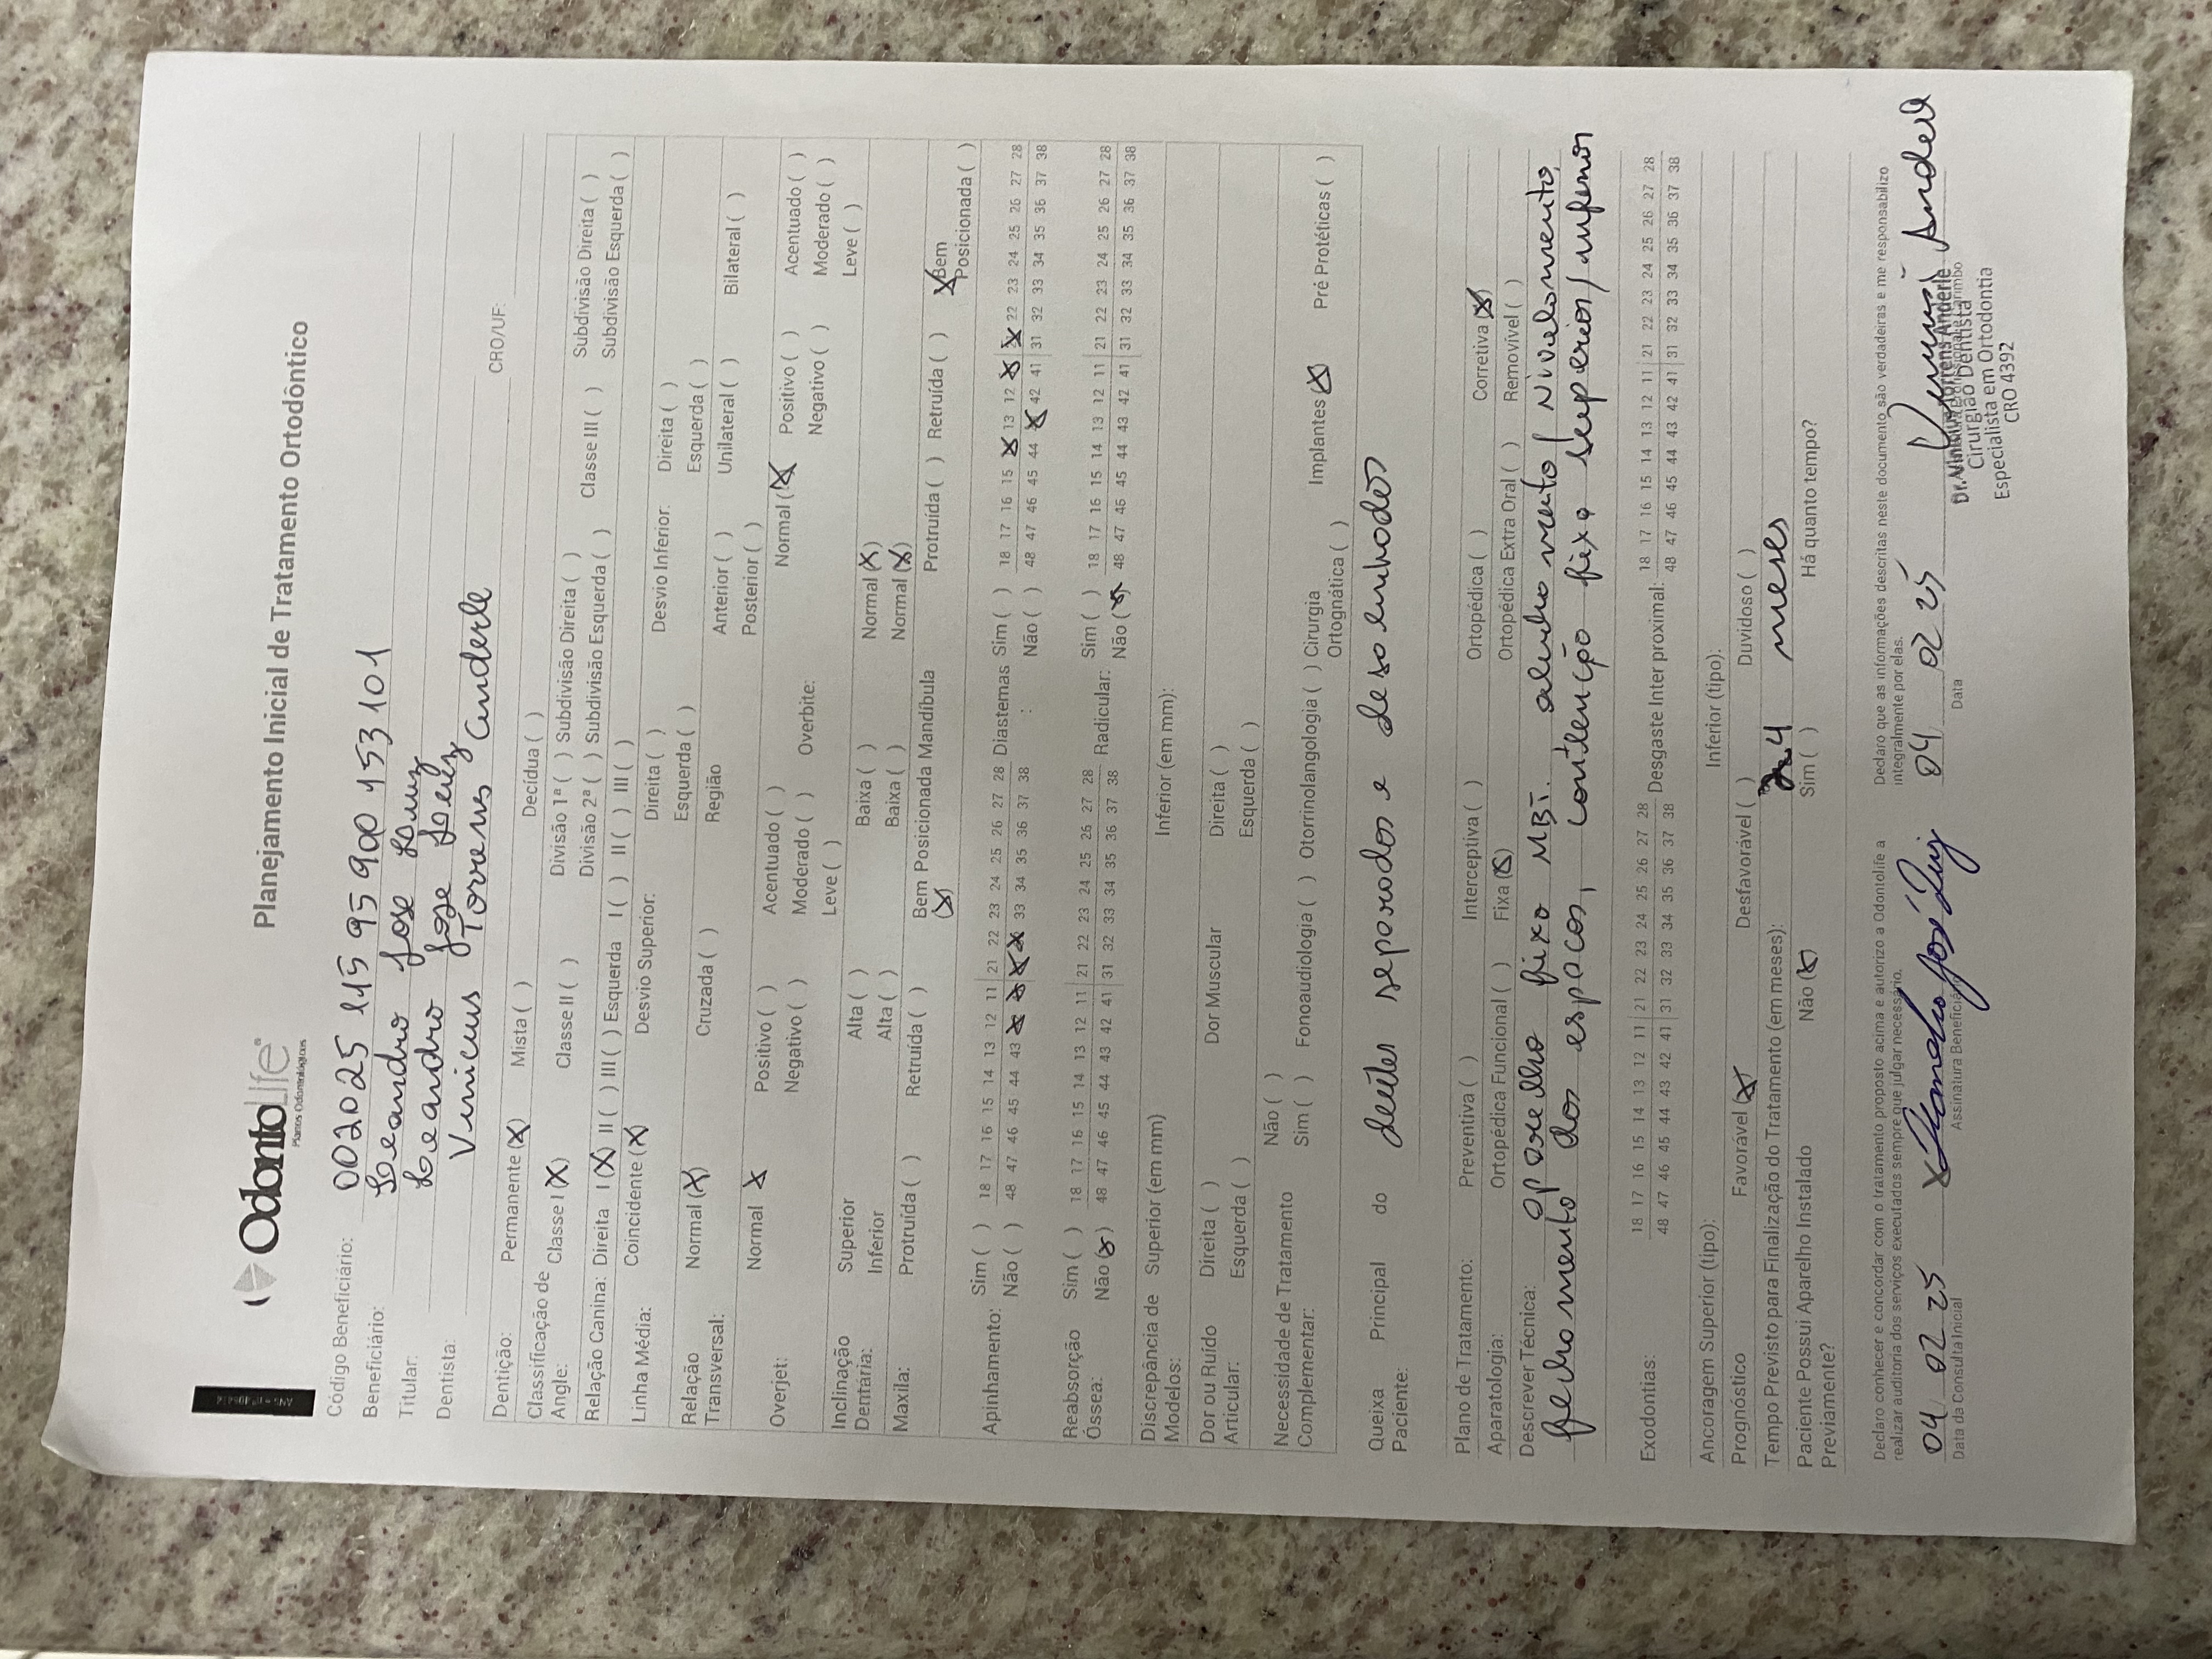 OdontoLife
Planos Odontológicos
Planejamento Inicial de Tratamento Ortodôntico
Código Beneficiário: 002025 445 95 900 153 101
Beneficiário: Leandro Jose Luiz
Titular: Leandro Jose Luiz
Dentista: Vinicius Torrens Anderle CRO/UF:
Dentição: Permanente (X) Mista ( ) Decídua ( )
Classificação de Angle: Classe I (X) Classe II ( ) Divisão 1ª ( ) Subdivisão Direita ( ) Classe III ( ) Subdivisão Direita ( )
Divisão 2ª ( ) Subdivisão Esquerda ( ) Subdivisão Esquerda ( )
Relação Canina: Direita I (X) II ( ) III ( ) Esquerda I ( ) II ( ) III ( )
Linha Média: Coincidente (X) Desvio Superior: Direita ( ) Desvio Inferior: Direita ( )
Esquerda ( ) Esquerda ( )
Relação Transversal: Normal (X) Cruzada ( ) Região Anterior ( ) Unilateral ( ) Bilateral ( )
Posterior ( )
Overjet: Normal X Positivo ( ) Acentuado ( ) Overbite: Normal (X) Positivo ( ) Acentuado ( )
Negativo ( ) Moderado ( ) Negativo ( ) Moderado ( )
Leve ( ) Leve ( )
Inclinação Dentária: Superior Alta ( ) Baixa ( ) Normal (X)
Inferior Alta ( ) Baixa ( ) Normal (X)
Maxila: Protruída ( ) Retruída ( ) Bem Posicionada (X) Mandíbula Protruída ( ) Retruída ( ) X Bem Posicionada ( )
Apinhamento: Sim ( ) 18 17 16 15 14 13 12 11 | 21 22 23 24 25 26 27 28 Diastemas : Sim ( ) 18 17 16 15 X 13 12 X X 22 23 24 25 26 27 28
Não ( ) 48 47 46 45 44 43 X X X X 33 34 35 36 37 38 Não ( ) 48 47 46 45 44 X 42 41 | 31 32 33 34 35 36 37 38
Reabsorção Óssea: Sim ( ) 18 17 16 15 14 13 12 11 | 21 22 23 24 25 26 27 28 Radicular: Sim ( ) 18 17 16 15 14 13 12 11 | 21 22 23 24 25 26 27 28
Não (X) 48 47 46 45 44 43 42 41 | 31 32 33 34 35 36 37 38 Não (X) 48 47 46 45 44 43 42 41 | 31 32 33 34 35 36 37 38
Discrepância de Modelos: Superior (em mm) Inferior (em mm):
Dor ou Ruído Articular: Direita ( ) Dor Muscular Direita ( )
Esquerda ( ) Esquerda ( )
Necessidade de Tratamento Complementar: Não ( )
Sim ( ) Fonoaudiologia ( ) Otorrinolangologia ( ) Cirurgia Ortognática ( ) Implantes (X) Pré Protéticas ( )
Queixa Principal do Paciente: dentes separados e desalinhados
Plano de Tratamento: Preventiva ( ) Interceptiva ( ) Ortopédica ( ) Corretiva (X)
Aparatologia: Ortopédica Funcional ( ) Fixa (X) Ortopédica Extra Oral ( ) Removível ( )
Descrever Técnica: aparelho fixo MBT. alinhamento/ Nivelamento,
fechamento dos espaços, contenção fixa superior/inferior
Exodontias: 18 17 16 15 14 13 12 11 | 21 22 23 24 25 26 27 28 Desgaste Inter proximal: 18 17 16 15 14 13 12 11 | 21 22 23 24 25 26 27 28
48 47 46 45 44 43 42 41 | 31 32 33 34 35 36 37 38 48 47 46 45 44 43 42 41 | 31 32 33 34 35 36 37 38
Ancoragem Superior (tipo): Inferior (tipo):
Prognóstico Favorável (X) Desfavorável ( ) Duvidoso ( )
Tempo Previsto para Finalização do Tratamento (em meses): 24 meses
Paciente Possui Aparelho Instalado Previamente? Não (X) Sim ( ) Há quanto tempo?
Declaro conhecer e concordar com o tratamento proposto acima e autorizo a Odontolife a
realizar auditoria dos serviços executados sempre que julgar necessário.
Declaro que as informações descritas neste documento são verdadeiras e me responsabilizo
integralmente por elas.
04 02 25 X Leandro José Luiz 04 02 25 Vinicius Anderle
Data da Consulta Inicial Assinatura Beneficiário Data
Dr. Vinicius Torrens Anderle
Cirurgião Dentista
Especialista em Ortodontia
CRO 4392